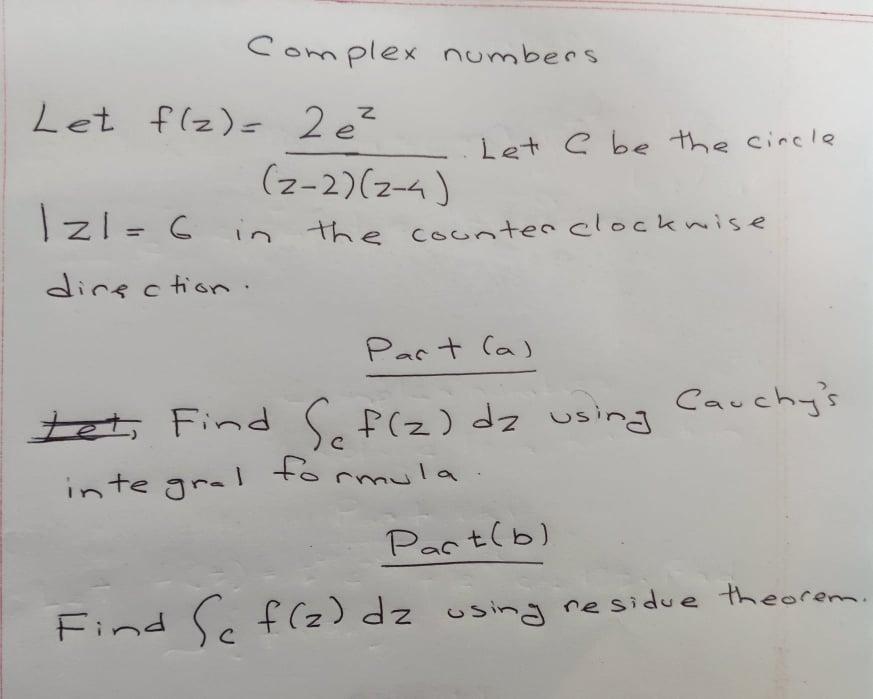 Complex numbers
Let f(z) = 2e^z / (z-2)(z-4) . Let C be the circle
|z| = 6 in the counter clockwise
direction.
Part (a)
Let, Find ∫_c f(z) dz using Cauchy's
integral formula.
Part (b)
Find ∫_c f(z) dz using residue theorem.